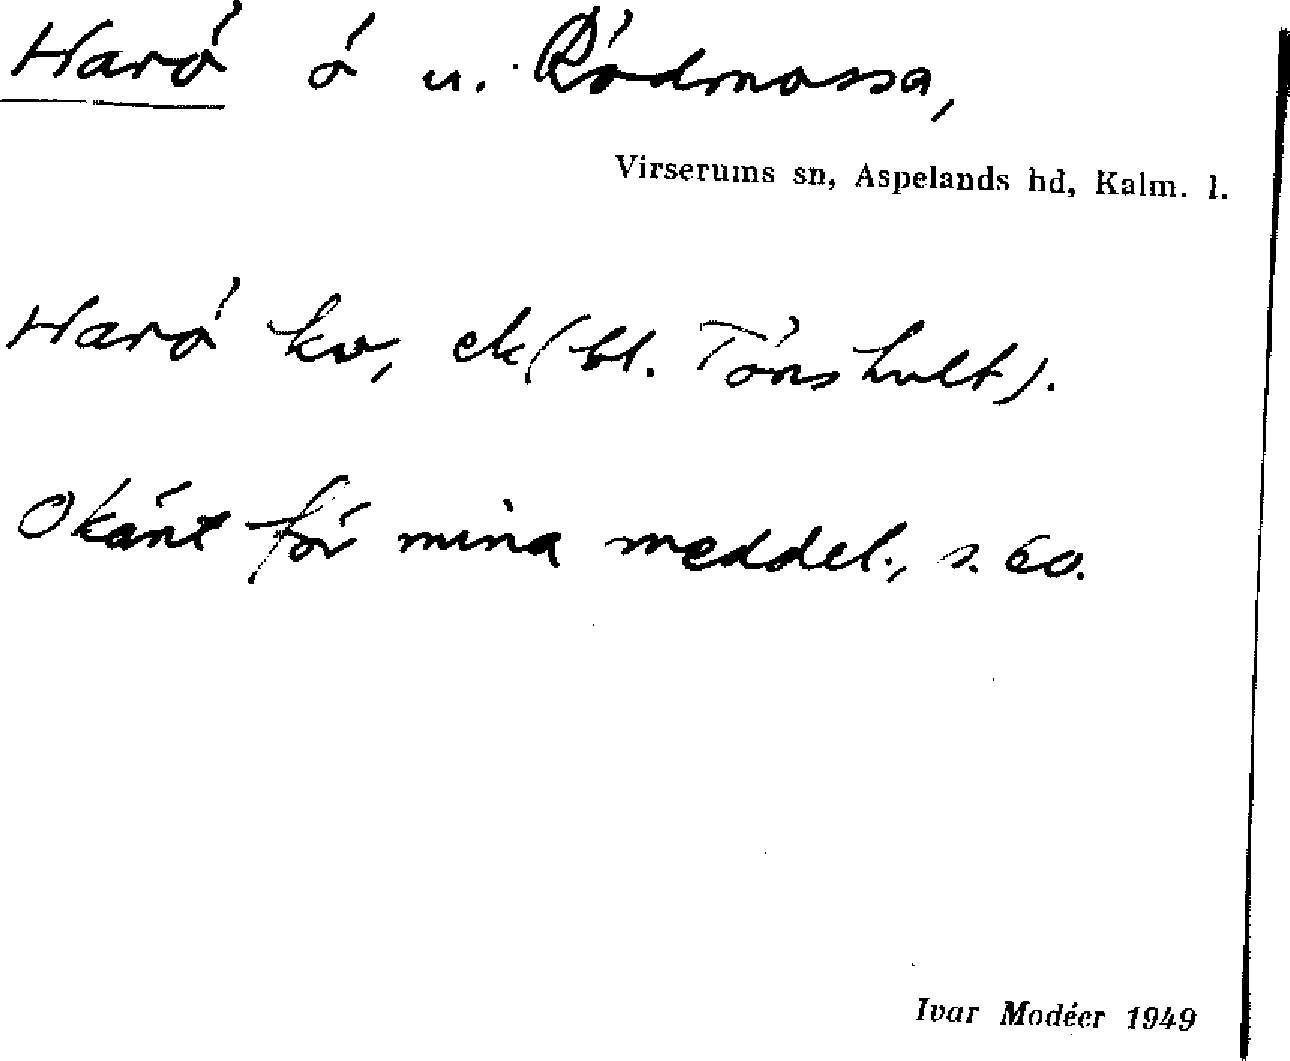 Harö ö u. Rödmossa,
Virserums sn, Aspelands hd, Kalm. l.
Harö kv, ek (bl. Tönshult).
Okänt för mina meddel., s. åo.
Ivar Modéer 1949